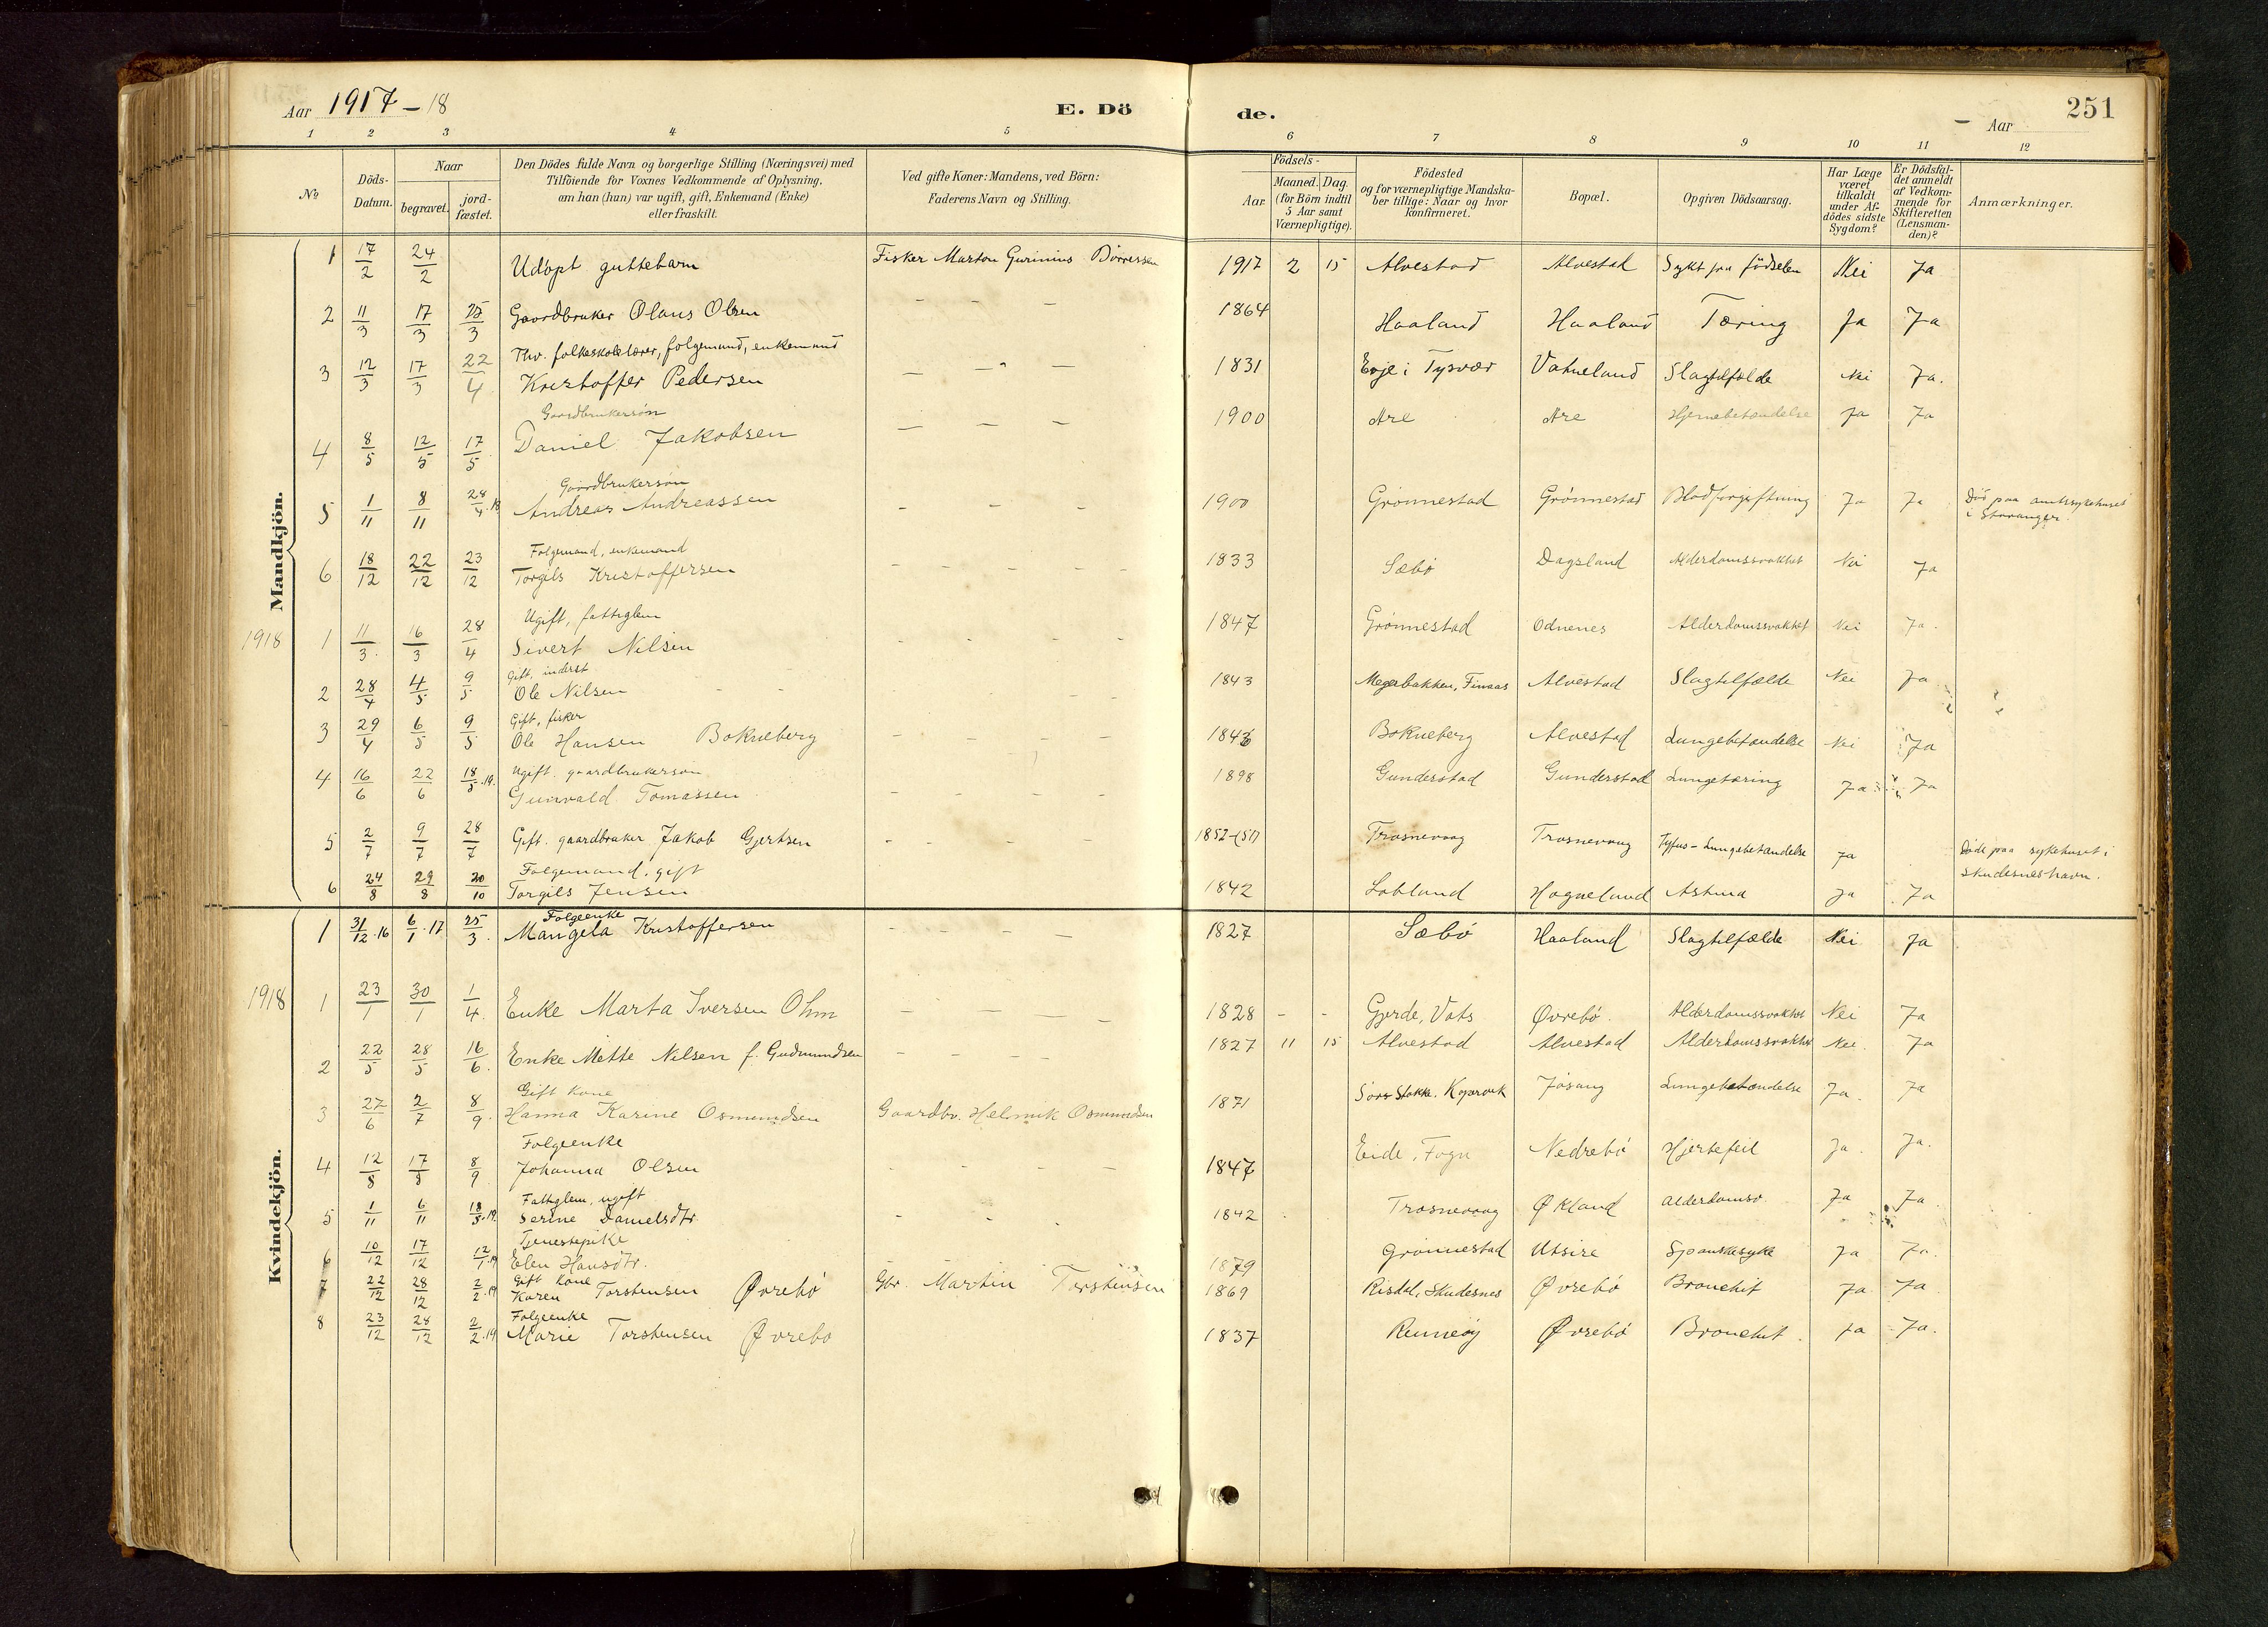 Aar 1917-18 E. Dö de. - Aar 251
1 2 3 4 5 6 7 8 9 10 11 12
No
Döds-Datum.
Naar
begravet. jordfæstet.
Den Dödes fulde Navn og borgerlige Stilling (Næringsvei) med
Tilföiende for Voxnes Vedkommende af Oplysning,
om han (hun) var ugift, gift, Enkemand (Enke)
eller fraskilt.
Ved gifte Koner: Mandens, ved Börn:
Faderens Navn og Stilling.
Födsels-
Aar Maaned. Dag.
(for Börn indtil
5 Aar samt
Værnepligtige).
Födested
og for værnepligtige Mandska-
ber tillige: Naar og hvor
konfirmeret.
Bopæl.
Opgiven Dödsaarsag.
Har Læge
været
tilkaldt
under Af-
dödes sidste
Sygdom?
Er Dödsfal-
det anmeldt
af Vedkom-
mende for
Skifteretten
(Lensman-
den)?
Anmærkninger.
Mandkjön.
1 17/2 24/2 Udöpt guttebarn Fisker Marton Gurinius Dörressen 1917 2 15 Alvestad Alvestad Sykt fra födselen Nei Ja
2 11/3 17/3 25/3 Gaardbruker Olaus Olsen - - - 1864 Haaland Haaland Tæring Ja Ja
3 12/3 17/3 22/4 Thv. folkeskolelærer, folgemand, enkemand
Kristoffer Pedersen - - - 1831 Evje i Tysvær Vatneland Slagtilfælde Nei Ja.
4 8/5 12/5 17/5 Gaardbrukersön
Daniel Jakobsen - - - 1900 Are Are Hjernebetændelse Ja Ja
5 1/11 8/11 28/4.18 Gaardbrukersön
Andreas Andreassen - - - 1900 Grönnestad Grönnestad Blodforgiftning Ja Ja Död paa amtssykehuset
i Stavanger.
6 18/12 22/12 23/12 Folgemand, enkemand
Torgils Kristoffersen - - - - - 1833 Sæbö Dagsland Alderdomssvakhet Nei Ja
1918 1 11/3 16/3 28/4 Ugift, fattiglem
Sivert Nilsen - - - - 1847 Grönnestad Odnenes Alderdomssvakhet Nei Ja.
2 28/4 4/5 9/5 Gift, inderst
Ole Nilsen 1843 Megerbakken, Finaas Alvestad Slagtilfælde Nei Ja
3 29/4 6/5 9/5 Gift, fisker
Ole Hansen Bokneberg - - - - 1843 Bokneberg Alvestad Lungebetændelse Nei Ja
4 16/6 22/6 18/5.19. Ugift. gaardbrukersön
Gunvald Tomassen - - - - 1898 Gunderstad Gunderstad Lungetæring Ja Ja
5 2/7 9/7 28/7 Gift. gaardbruker Jakob Gjertsen - - - - 1852-(51) Trosnevaag Trosnevaag Tyfus-Lungebetændelse Ja Döde paa sykehuset i
Skudesneshavn.
6 24/8 29/8 20/10 Folgemand, gift
Torgils Jensen 1842 Lobland Hogneland Astma Ja Ja
Kvindekjön.
1 31/12.16 6/1.17 25/3. Folgeenke
Mangela Kristoffersen - - - - - 1827 Sæbö Haaland Slagtilfælde Nei Ja
1918 1 23/1 30/1 1/4. Enke Marta Iversen Ohm - - - - 1828 - - Gjerde, Vats Øvrebö. Alderdomssvakhet Nei Ja
2 22/5 28/5 16/6. Enke Mette Nilsen f. Gudmundsen - - - - 1827 11 15 Alvestad Alvestad Alderdomssvakhet Nei. Ja
3 27/6 2/7 8/9. Gift Kone
Hanna Karine Osmundsen Gaardbr. Helmik Osmundsen 1871 Sörs Stokke. Kopervik Jösang Lungebetændelse Ja. Ja
4 12/8 17/8 8/9 Folgeenke
Johanna Olsen - - - - 1847 Eide, Fogn Nedrebö Hjertefeil Ja. Ja.
5 1/11 6/11 18/5.19 Fattiglem, ugift
Serine Danielsdtr. - - - 1842 Trosnevaag Økland Alderdomsv. Ja Ja
6 10/12 17/12 12/1.19 Tjenestepike
Elen Hansdtr. 1879 Grönnestad Utsire Spanskesyke Ja Ja.
7 22/12 28/12 2/2.19 Gift Kone
Karen Torstensen Øvrebö Gbr. Martin Torstensen 1869 Risdal, Skudesnes Øvrebö Bronchit Ja Ja
8 23/12 28/12 2/2.19 Folgeenke
Marie Torstensen Øvrebö 1837 Rennesöy Øvrebö Bronchit. Ja Ja.